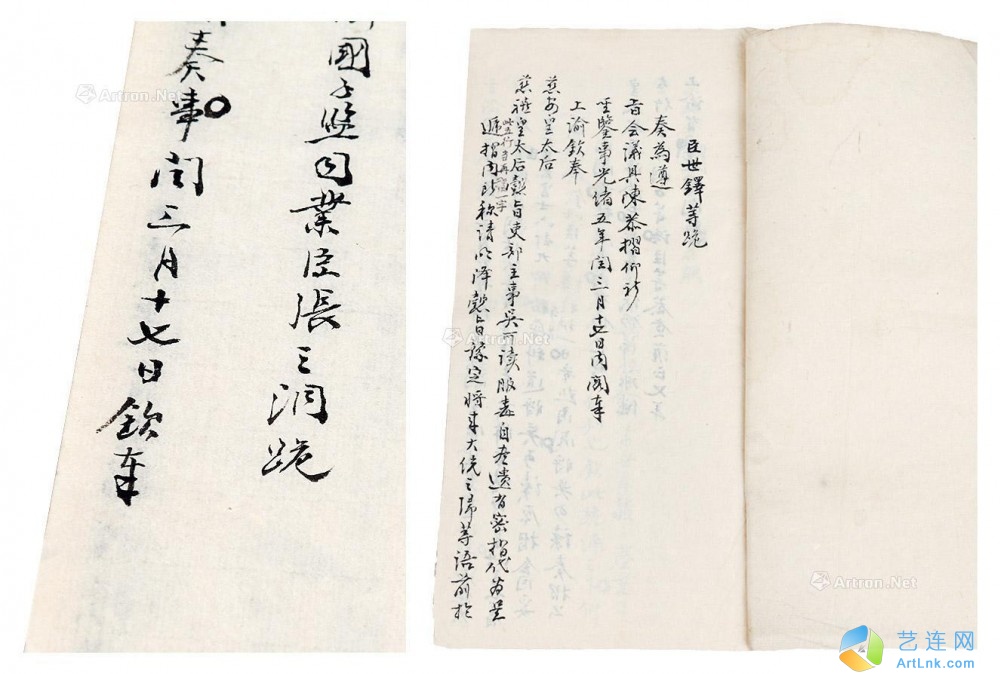 國子監司業臣張之洞跪
奏事閏三月十七日欽奉
臣世鐸等跪
奏為遵
旨會議具陳恭摺仰祈
聖鑒事光緒五年閏三月十七日內閣奉
上諭欽奉
慈安皇太后
慈禧皇太后懿旨吏部主事吳可讀服毒自盡遺有密摺代為呈
遞摺內所稱請明降懿旨豫定將來大統之歸等語前於
Artron.Net
Artron.Net
Artron.Net
艺连网
ArtLnk.com